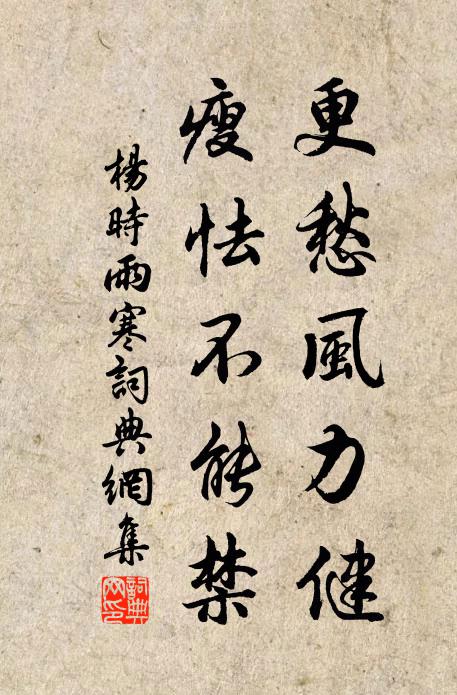 更愁風力健
瘦怯不能禁
楊時雨寒詞典網集
詞典網印